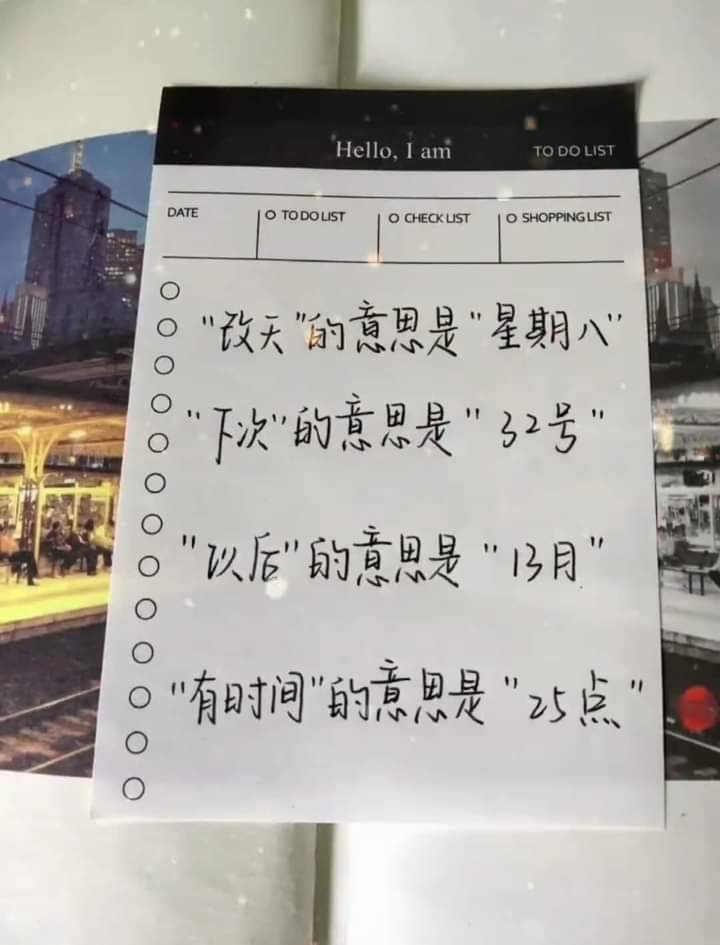 Hello, I am
TO DO LIST
DATE
TO DO LIST
CHECK LIST
SHOPPING LIST
"改天"的意思是"星期八"
"下次"的意思是"32号"
"以后"的意思是"13月"
"有时间"的意思是"25点"